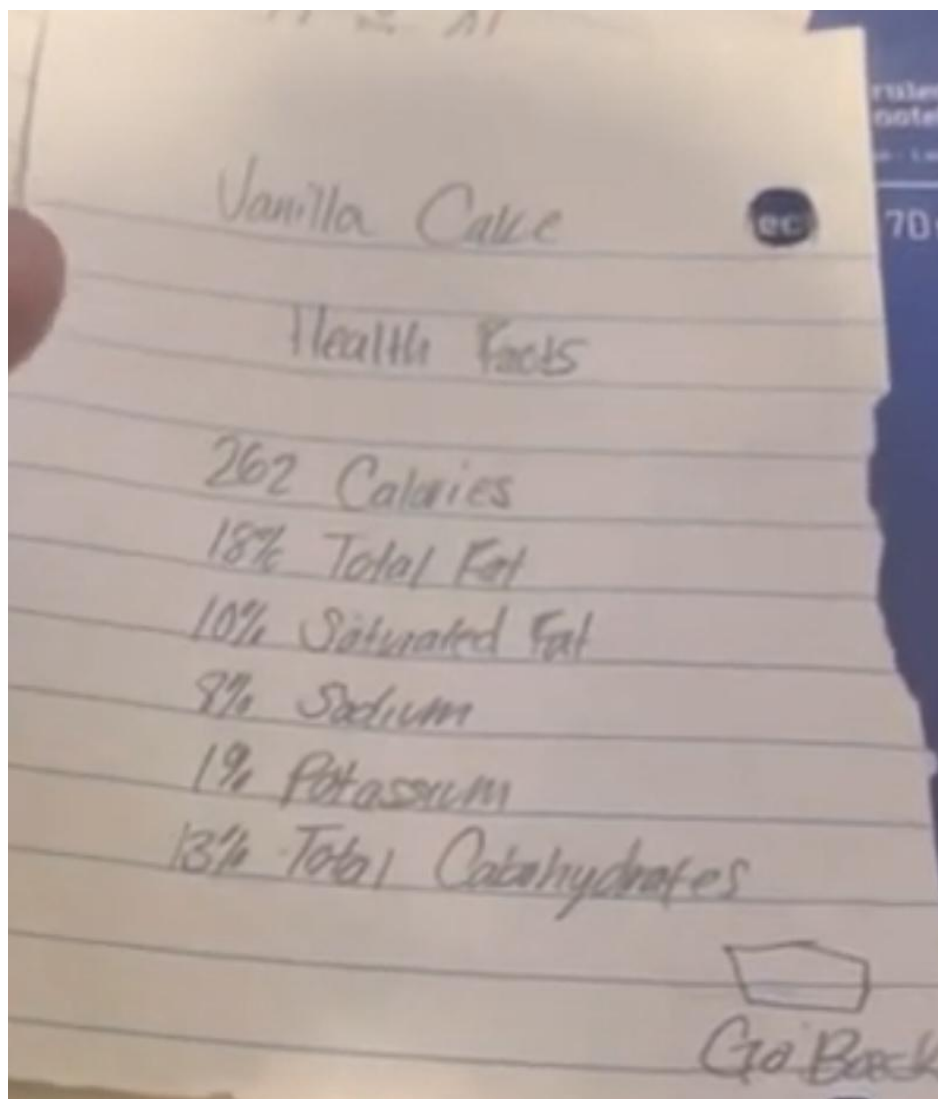 Vanilla Cake
ec
Health Facts
262 Calories
18% Total Fat
10% Saturated Fat
8% Sodium
1% Potassium
13% Total Cabohydrates
Go Back
70